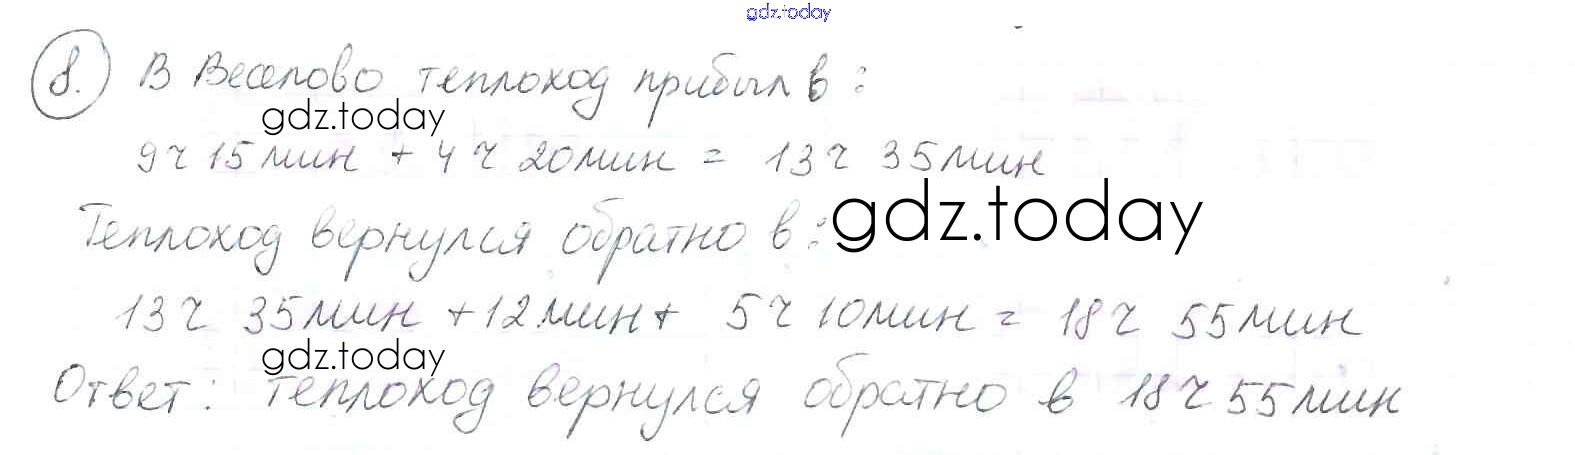 gdz.today
8. В Веселово теплоход прибыл в:
gdz.today
9ч 15мин + 4ч 20мин = 13ч 35мин
Теплоход вернулся обратно в:
gdz.today
13ч 35мин + 12мин + 5ч 10мин = 18ч 55мин
gdz.today
Ответ: теплоход вернулся обратно в 18ч 55мин